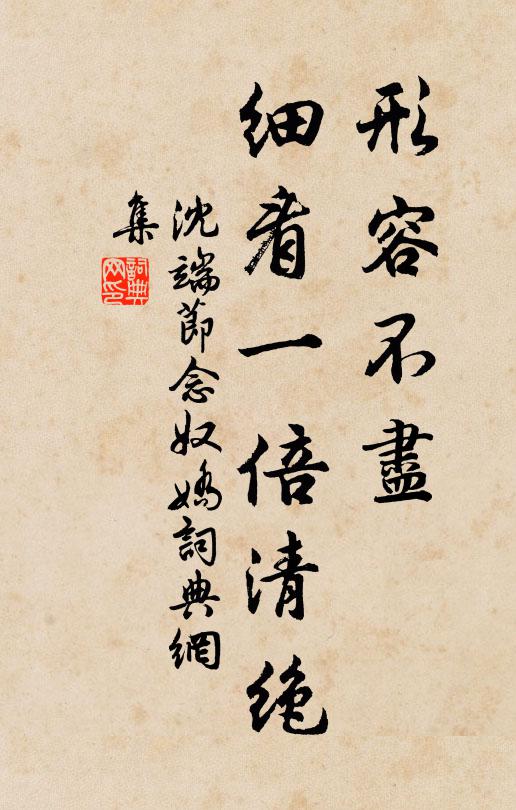 形容不盡
細看一倍清絶
沈端節念奴嬌詞典網
集
詞典網印